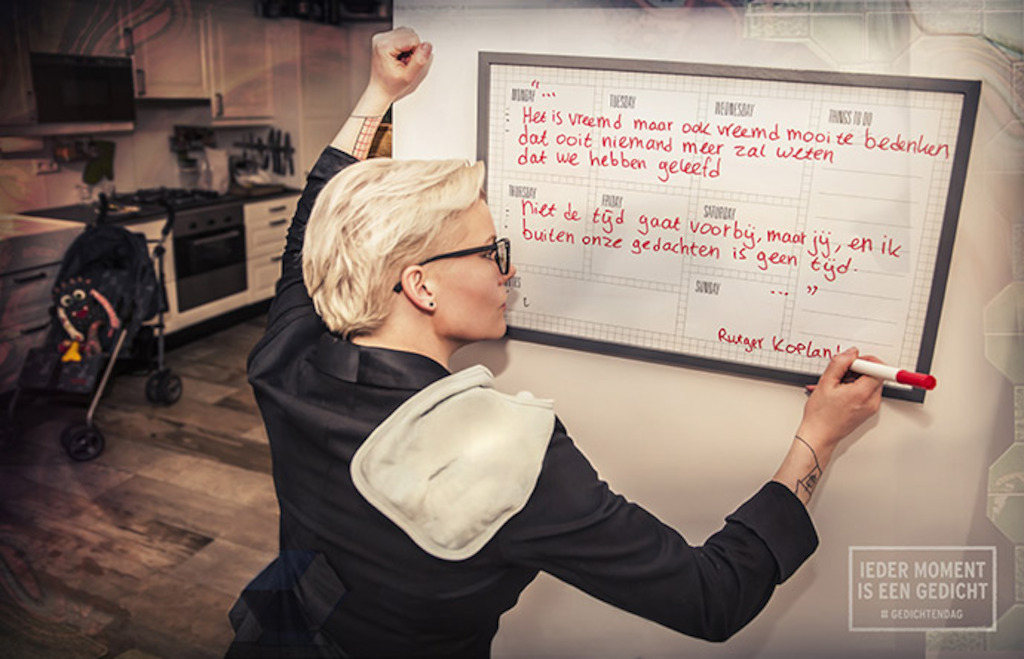 MONDAY TUESDAY WEDNESDAY THINGS TO DO
"...
Het is vreemd maar ook vreemd mooi te bedenken
dat ooit niemand meer zal weten
dat we hebben geleefd
THURSDAY FRIDAY SATURDAY
Niet de tijd gaat voorbij, maar jij, en ik
buiten onze gedachten is geen tijd.
... "
SUNDAY
Rutger Koplan
IEDER MOMENT
IS EEN GEDICHT
# GEDICHTENDAG